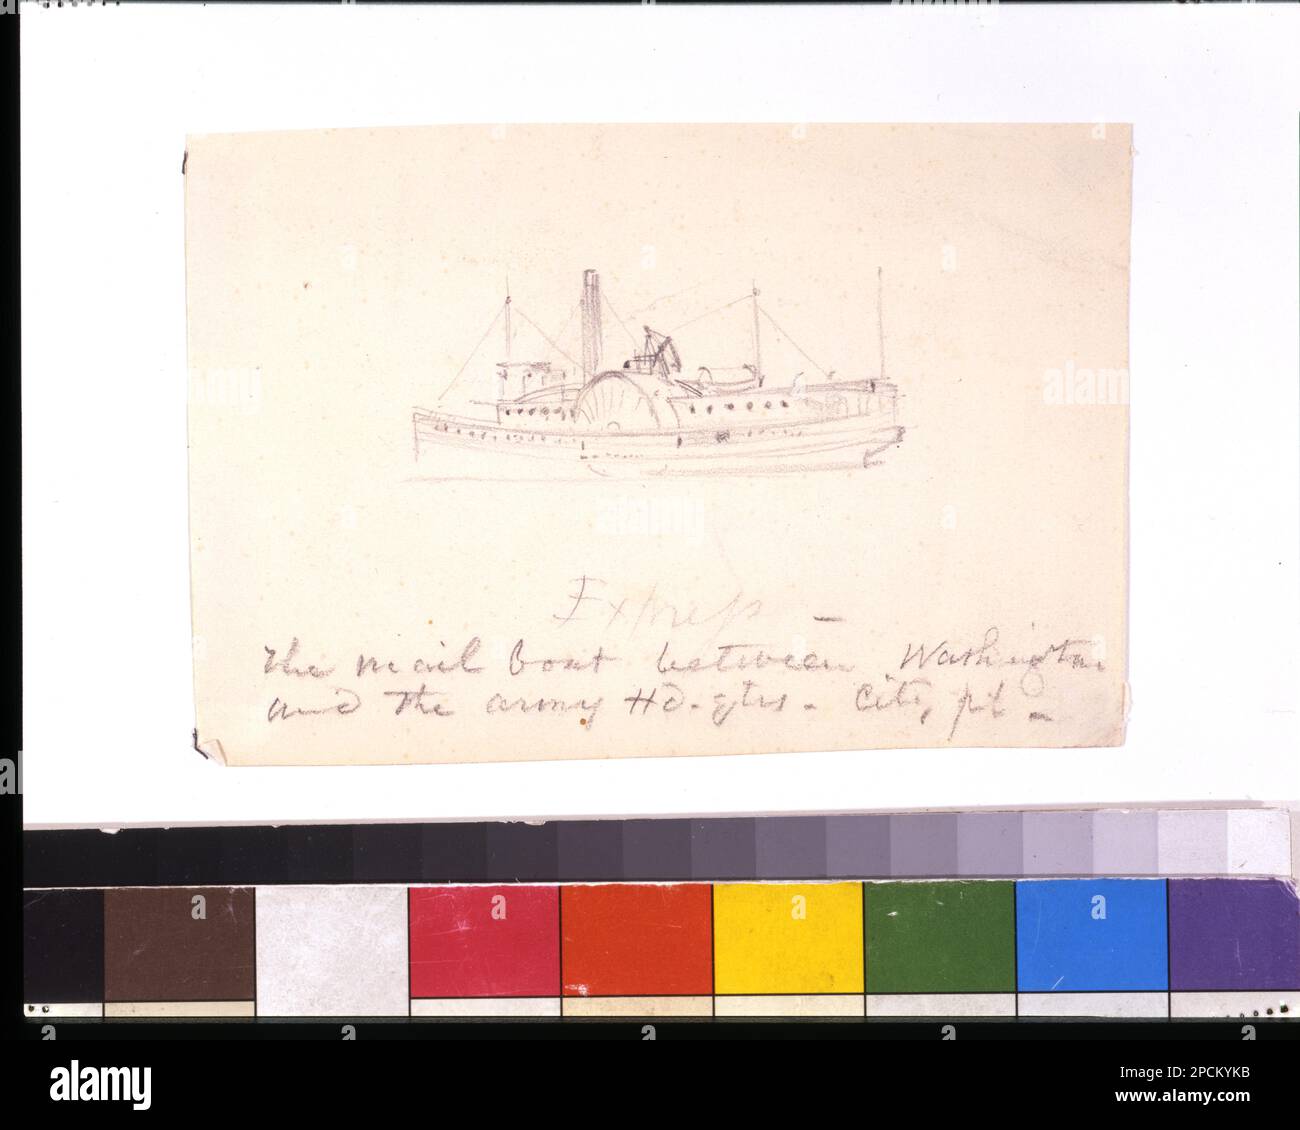 Express
The mail boat between Washington
and the army Hd.qtrs. City, pt
alamy
Image ID: 2PCKYKB
www.alamy.com